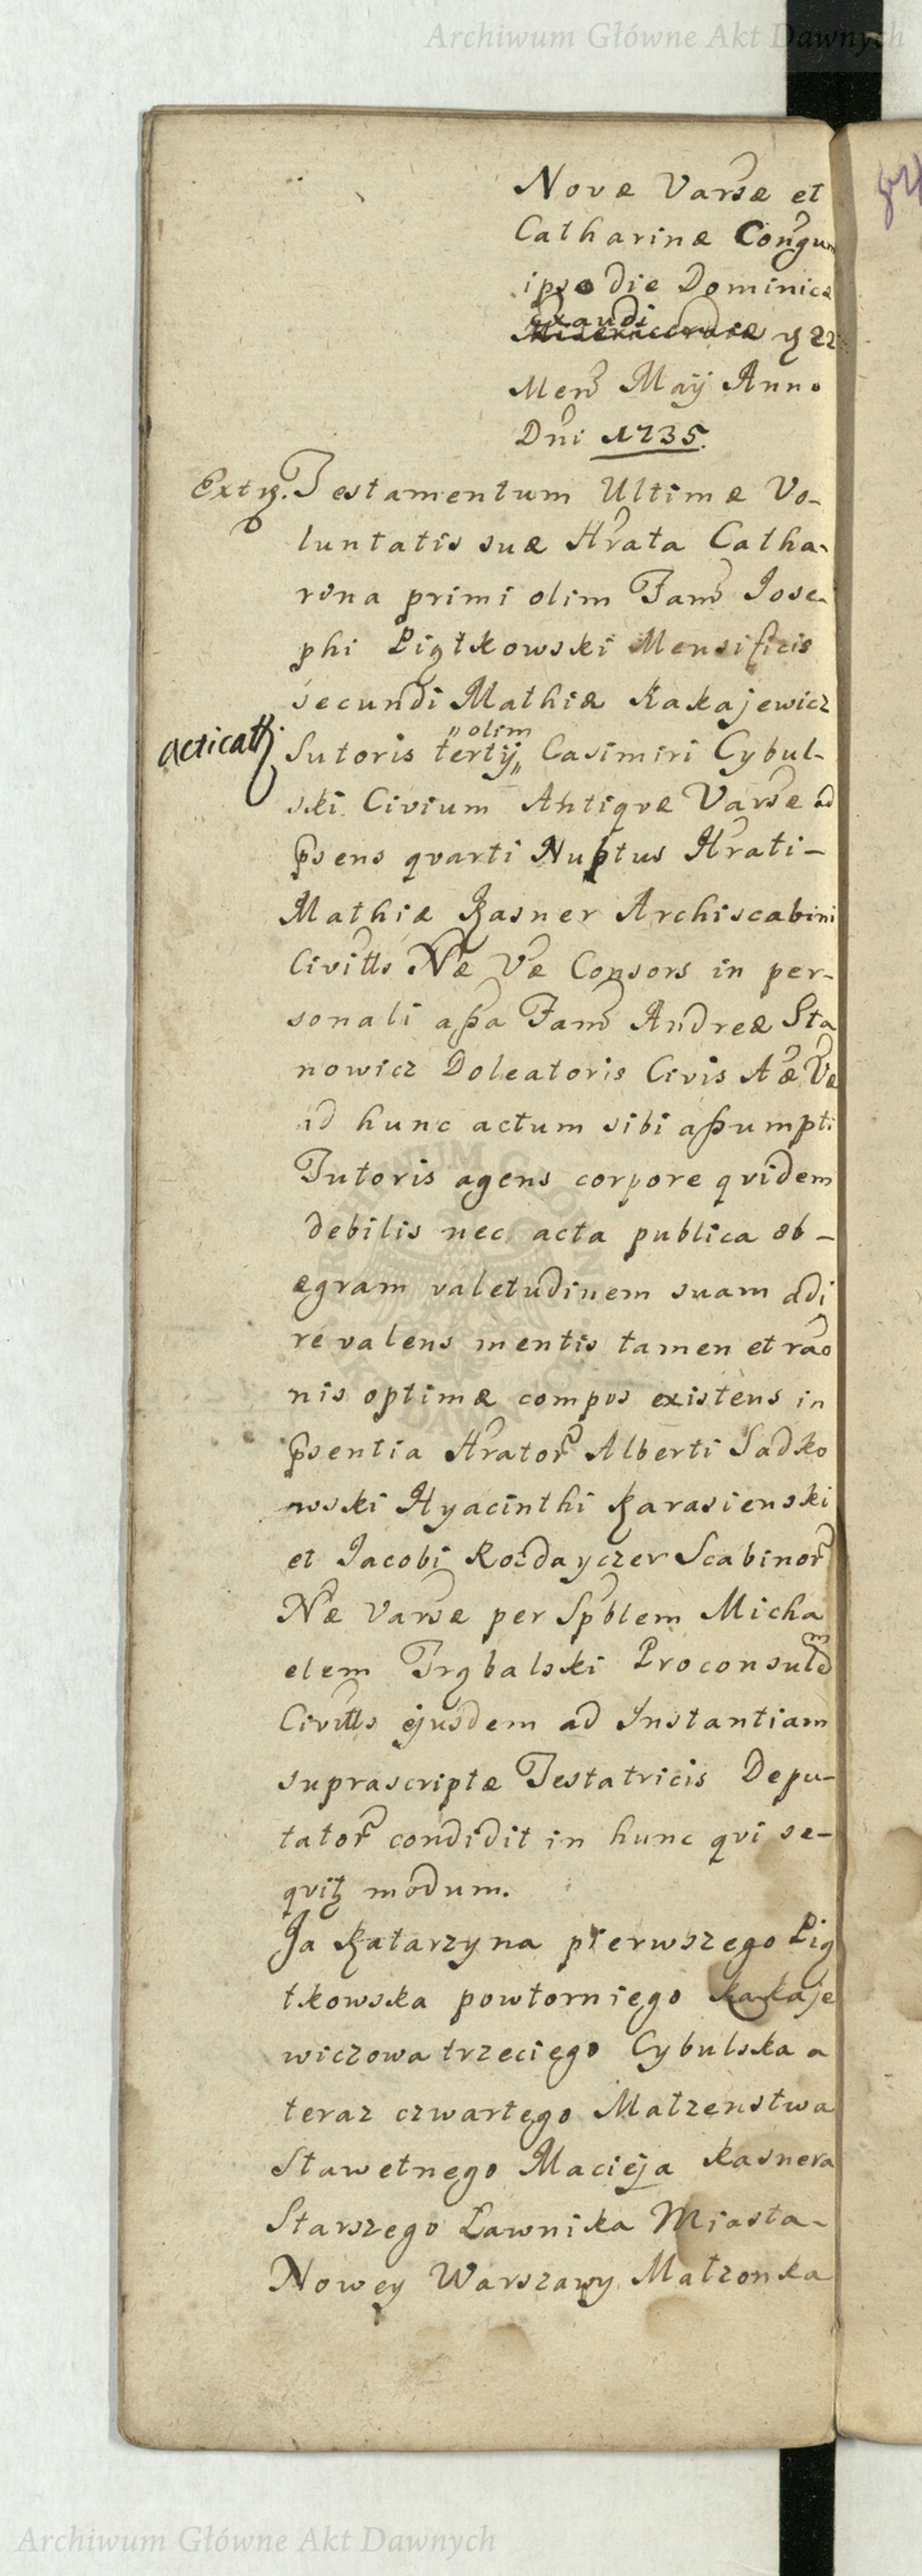 Archiwum Główne Akt Dawnych
Novæ Varsæ et
Catharinæ Congum
ipso die Dominicæ
Exaudi
22
Mens Maÿ Anno
Dni 1735.
Testamentum Ultimæ Vo-
luntatis suæ Hrata Catha-
rina primi olim Fams Jose-
phi Piątkowski Mensificis
secundi Mathiæ Kakajewicz
„olim
Acticatt
Sutoris tertÿ„ Casimiri Cybul-
ski Civium Antiqvæ Varsæ ad
psens qvarti Nuptus Hrati-
Mathiæ Kasner Archiscabini
Civitts Næ Væ Consors in per-
sonali assa Fams Andreæ Sta
nowicz Doleatoris Civis Aæ Væ
ad hunc actum sibi assumpti
Tutoris agens corpore qvidem
debilis nec acta publica ob-
ægram valetudinem suam adi
re valens mentis tamen et rao
nis optimæ compos existens in
psentia Hrator Alberti Sadko
wski Hyacinthi Karasienski
et Jacobi Rozdayczer Scabinor
Næ Varsæ per Spblem Micha
elem Trybalski Proconsulem
Civitts ejusdem ad Instantiam
suprascriptæ Testatricis Depu-
tator condidit in hunc qvi se-
qvitz modum.
Ja Katarzyna pierwszego Pią
tkowska powtorniego Kakaje
wiczowa trzeciego Cybulska a
teraz czwartego Małzenstwa
Sławetnego Macieja Kasnera
Starszego Ławnika Miasta-
Nowey Warszawy Małzonka
Archiwum Główne Akt Dawnych